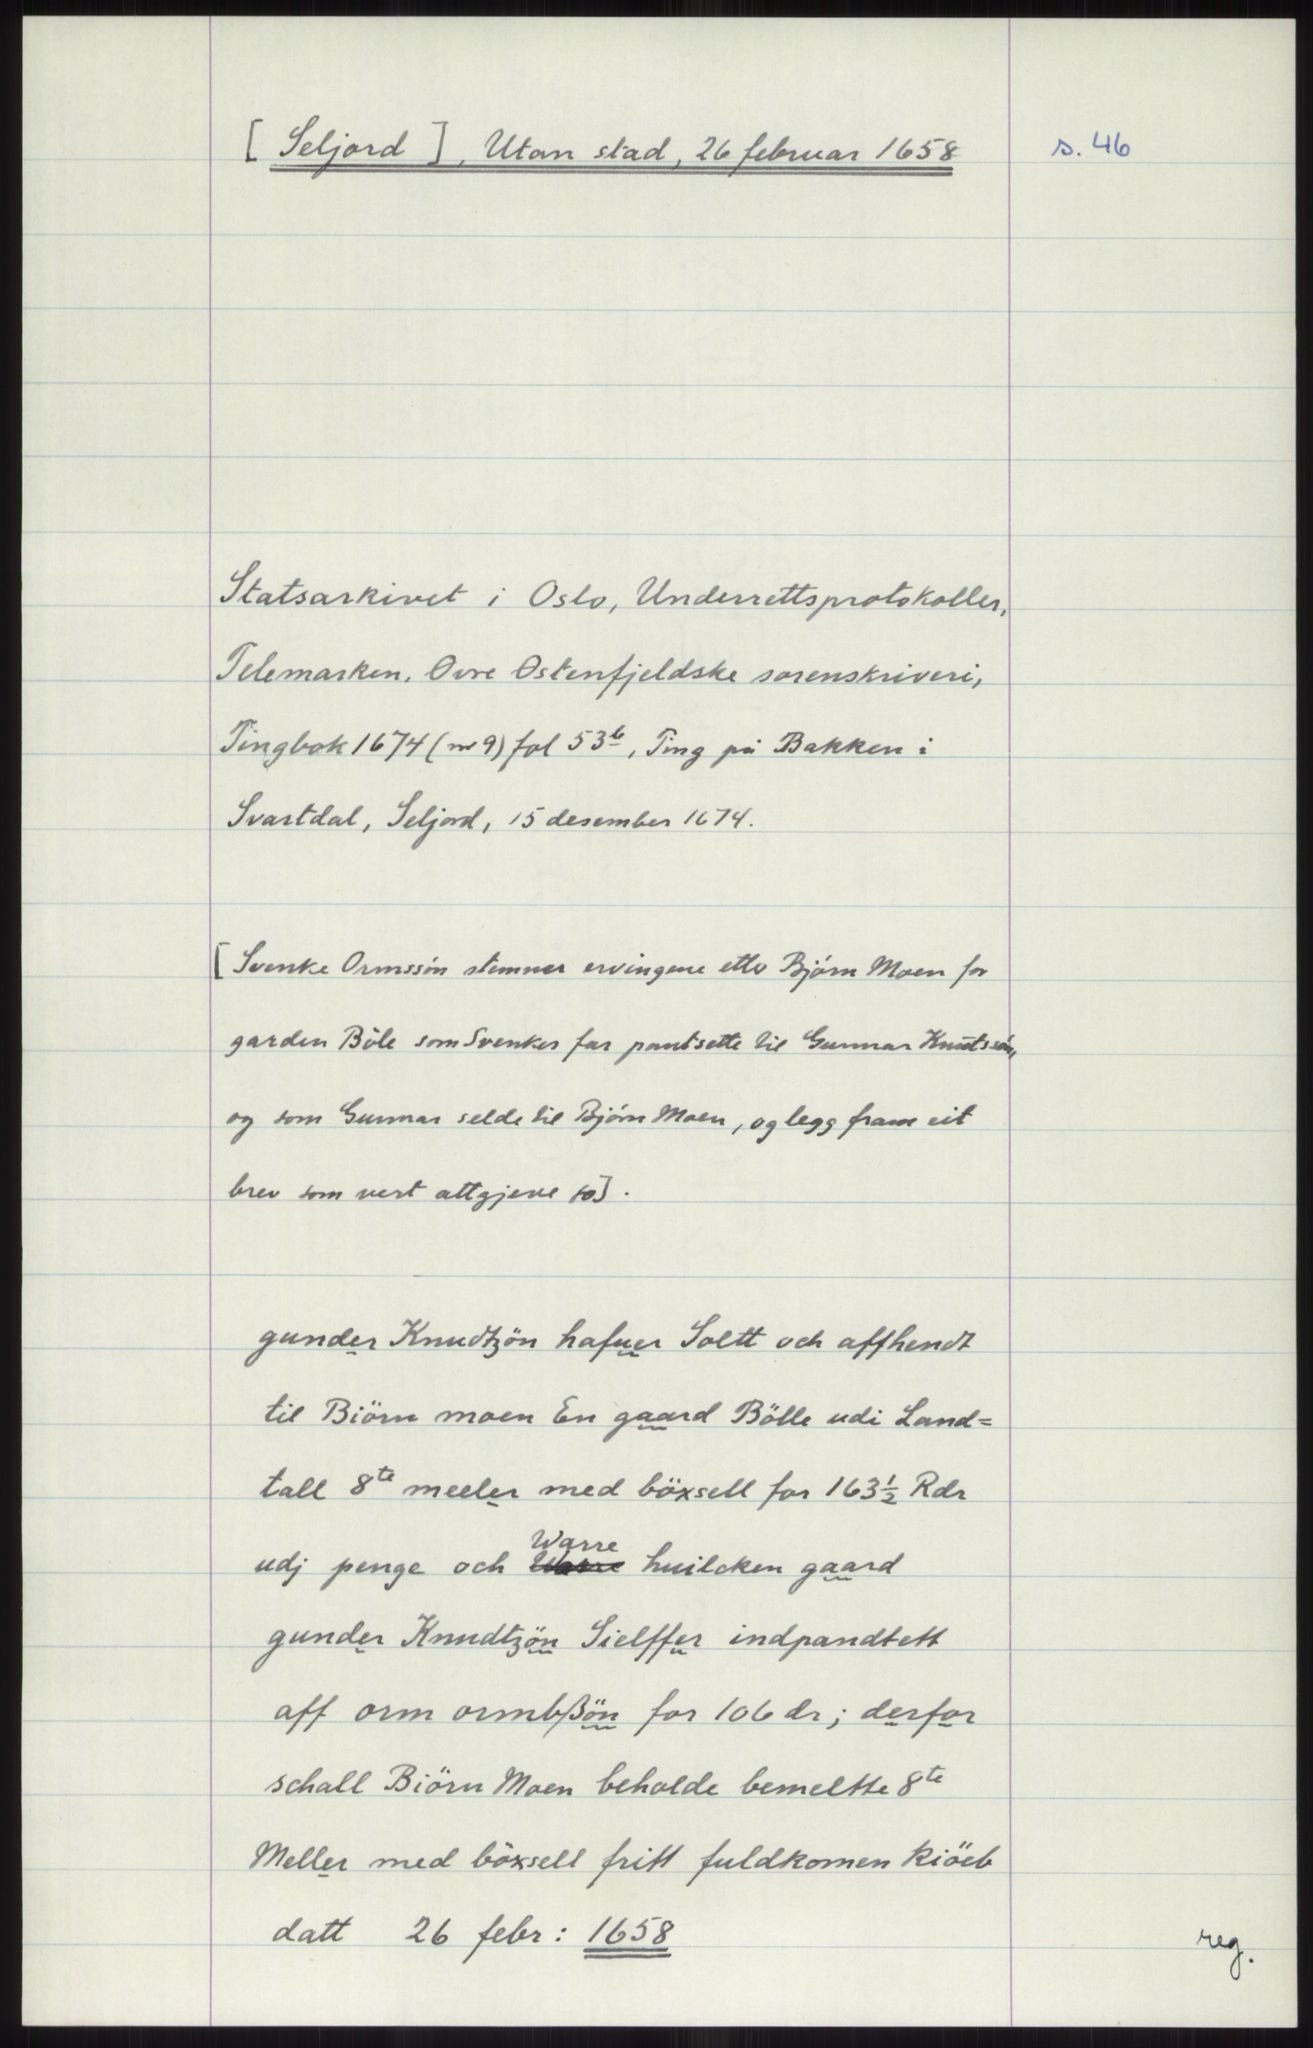 [ Seljord ], Utan stad, 26 februar 1658
s. 46
Statsarkivet i Oslo, Underrettsprotokoller,
Telemarken, Øvre Østenfjeldske sorenskriveri,
Tingbok 1674 (nr 9) fol 53b, Ting på Bakken i
Svartdal, Seljord, 15 desember 1674.
[ Svenke Ormssön stemner ervingene etter Björn Moen for
garden Böle som Svenkes far pantsette til Gunnar Knutssön,
og som Gunnar selde til Björn Moen, og legg fram eit
brev som vert attgjeve so].
gunder Knudtzön hafuer Soltt och affhendt
til Biörn moen En gaard Bölle udi Land=
tall 8te meeler med böxsell for 163½ Rdr
udj penge och Warre huilcken gaard
gunder Knudtzön Sielffer indpandtett
aff orm ormbßön for 106 dr; derfor
schall Biörn Moen beholde bemeltte 8te
Meller med böxsell fritt fuldkomen kiöeb
datt 26 febr: 1658
reg.